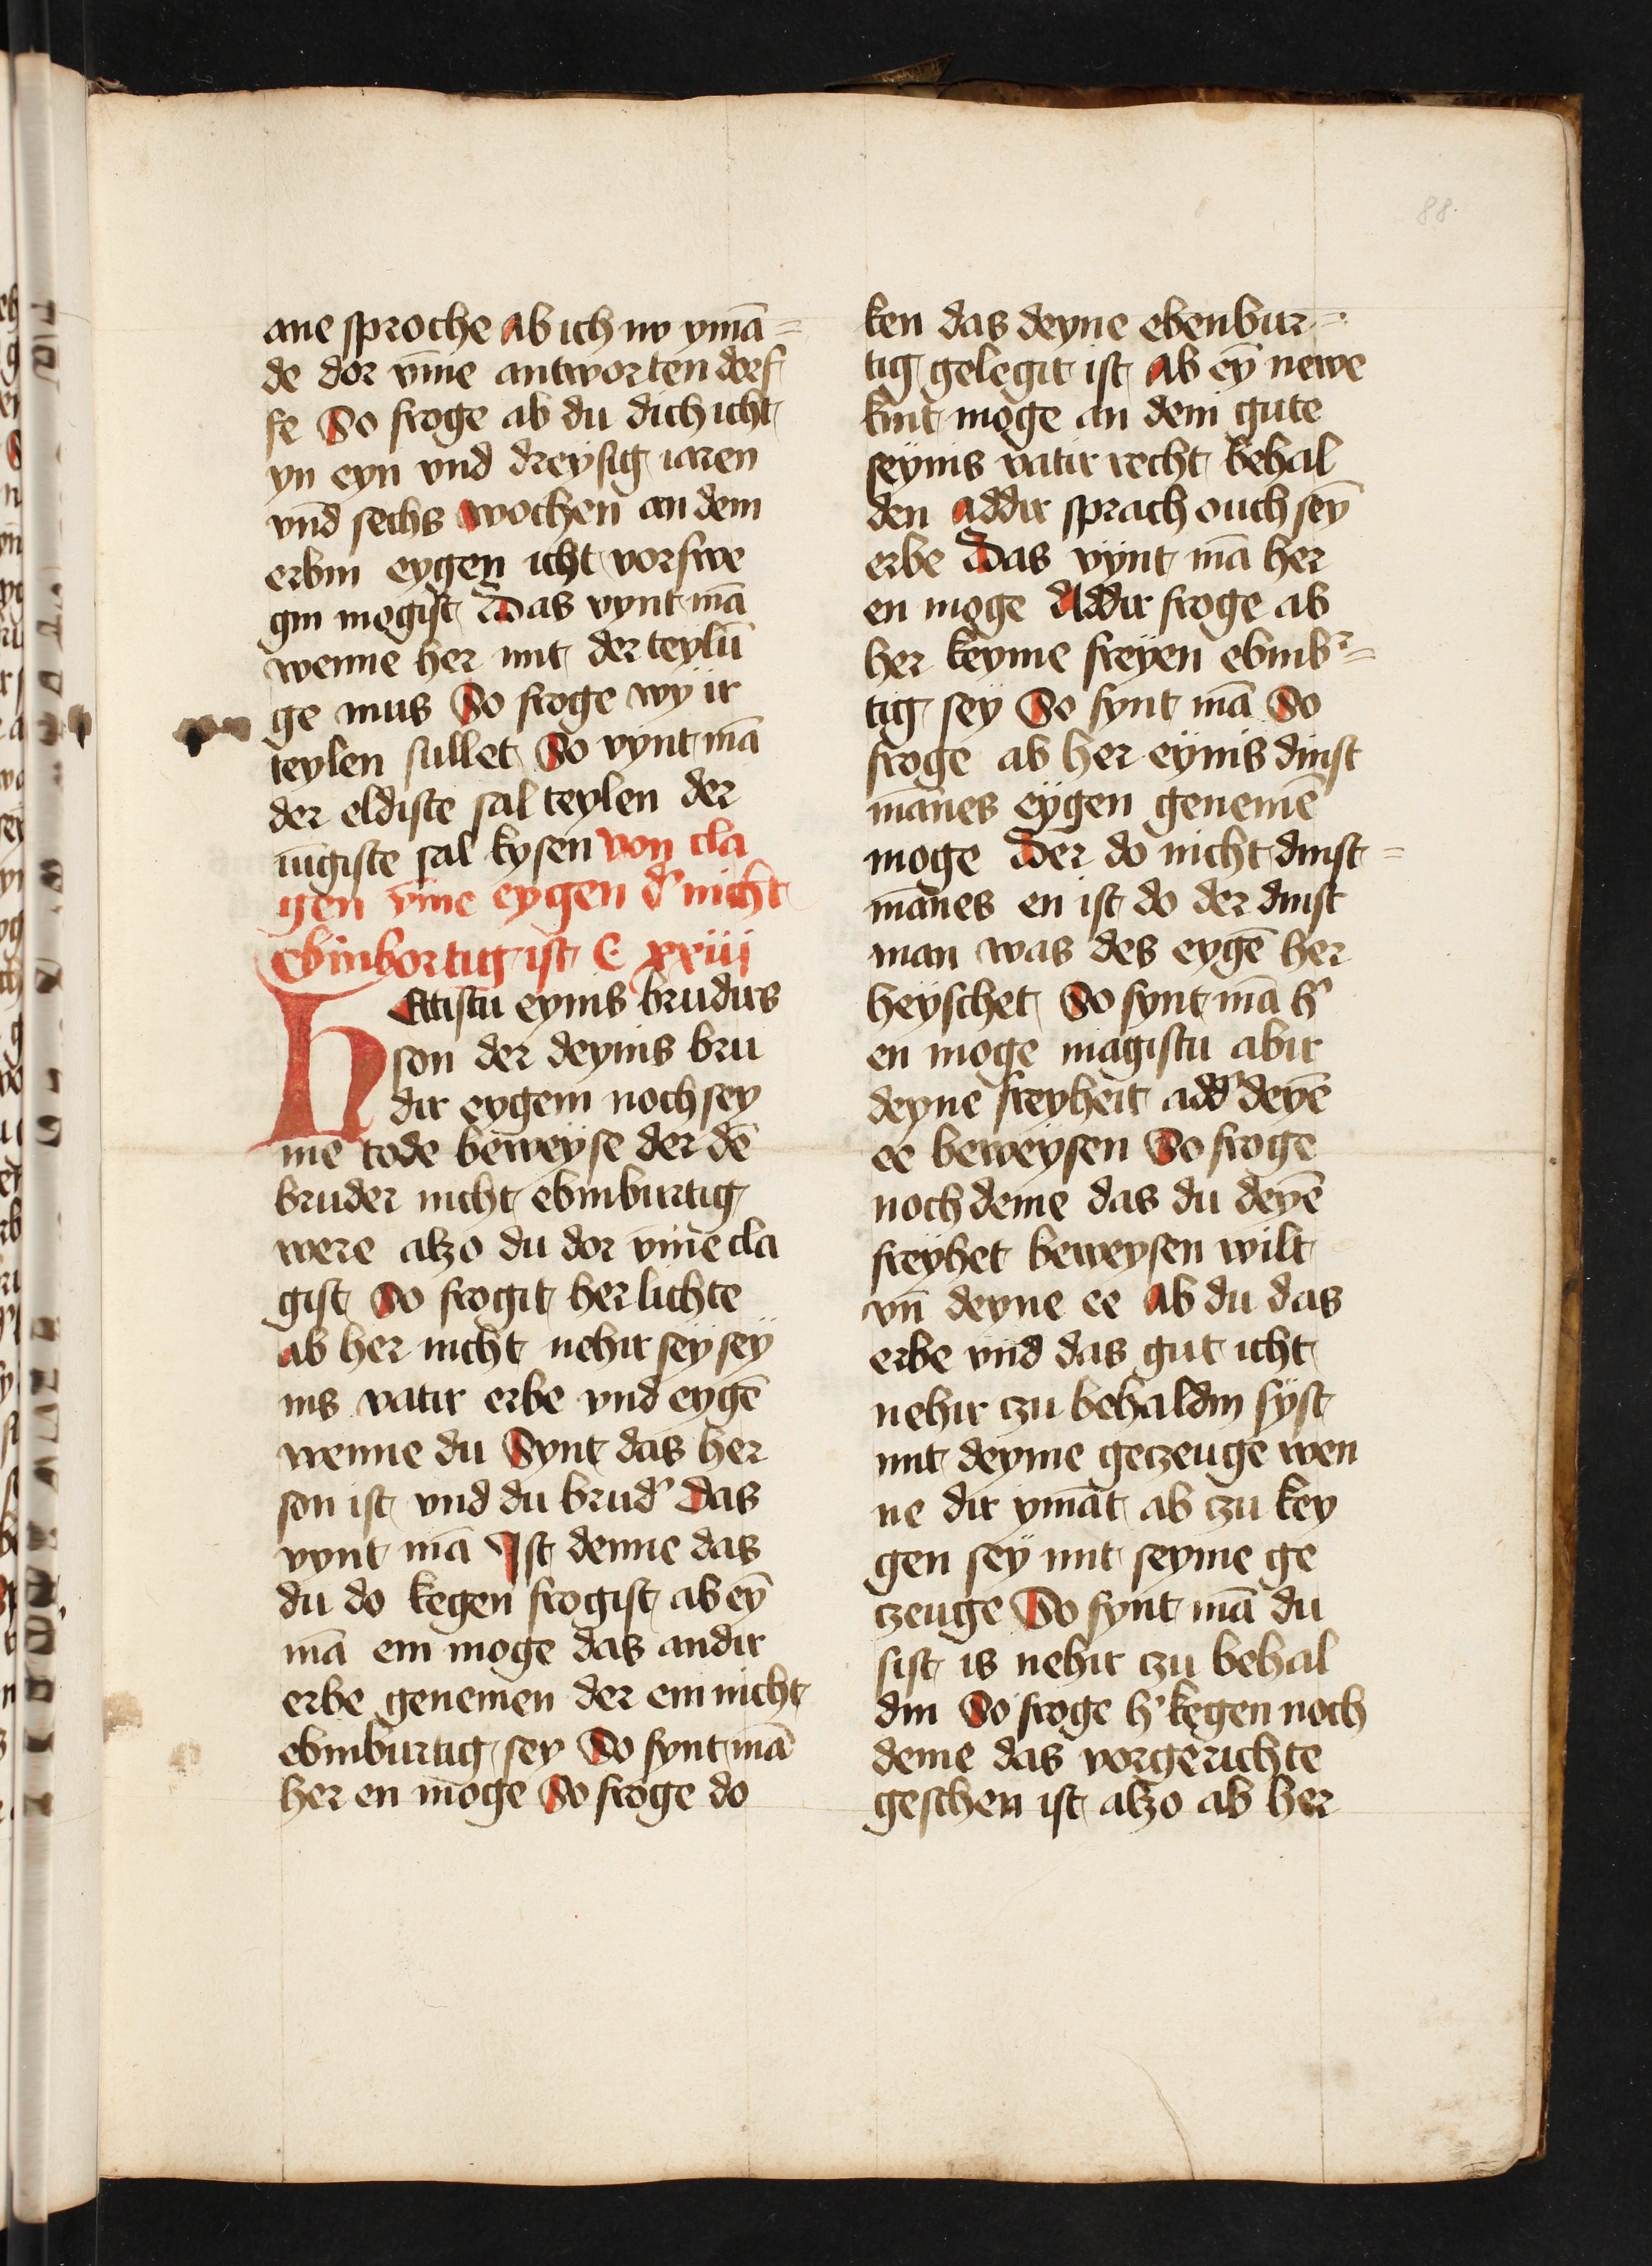 88.
ane sproche ab ich nv ymā=
de dor vm̄e antworten dorf
fe So froge ab du dich icht
yn eyn vnd dreysig iaren
vnd sechs wochen an dem
erbin eygen icht vorswe
gin mogist Das vynt mā
wenne her mit der teylū
ge mus So froge wy ir
teylen sullet So vynt mā
der eldiste sal teylen der
iūgiste sal kysen von cla
gen vm̄e eygen d' nicht
ebinbortig ist C xxiij
HAtistu eynis brudirs
son der deynis bru
dir eygem noch sey
me tode beweyse der dē
bruder nicht ebinburtig
were alzo du dor vm̄e cla
gist So frogit her lichte
ab her nicht nehir sey sey
nis vatir erbe vnd eygē
wenne du Synt das her
son ist vnd du brud' Das
vynt mā Ist denne das
du do kegen frogist ab eȳ
mā em moge das andir
erbe genemen der em nicht
ebinburtig sey So fynt mā
her en moge So froge do
ken das deyne ebenbur=
tig gelegit ist Ab eȳ newe
kint moge an dem gute
seynis vatir recht behal
den Addir sprach ouch seȳ
erbe Das vynt mā her
en moge Addir froge ab
her keyme freyen ebinb'=
tig sey So fynt mā So
froge ab her eynis dinst
mānes eygen genemē
moge Der do nicht dinst=
mānes en ist do der dinst
man was des eygē her
heyschet So fynt mā h'
en moge magistu abir
deyne freyheit add' deyē
ee beweysen So froge
noch deme das du deyē
freyhet beweysen wilt
vn̄ deyne ee Ab du das
erbe vnd das gut icht
nehir czu behaldin syst
mit deyme geczeuge wen
ne dir ymāt ab czu key
gen sey mit seyme ge
czeuge So fynt mā du
sist is nehir czu behal
din So froge h' kegen noch
deme das vorgerichte
geschen ist alzo ab her